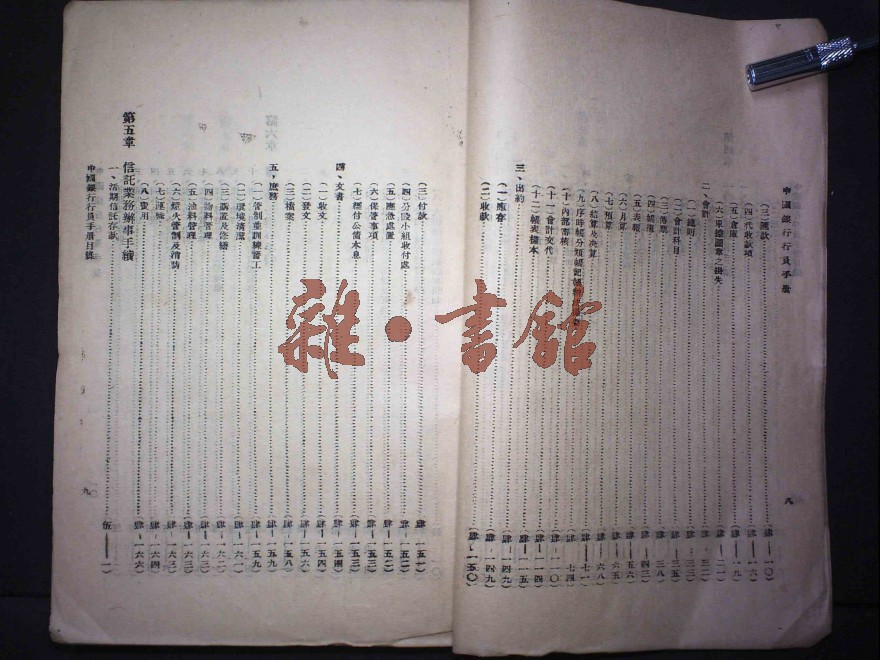 中國銀行行員手册
八
(三)匯款 肆—一〇
(四)代收款項 肆—一六
(五)倉庫 肆—一九
(六)單據圖章之掛失 肆—二一
二、會計 肆—三二
(一)總則 肆—三三
(二)會計科目 肆—三五
(三)傳票 肆—三八
(四)帳簿 肆—四三
(五)表報 肆—五六
(六)月算 肆—六五
(七)預算 肆—六八
(八)結算及決算 肆—七一
(九)序時帳分類帳記帳 肆—七四
(十)內部審核
(十一)會計交代
(十二)帳表樣本
三、出納 肆—一四九
(一)庫存 肆—一四九
(二)收款 肆—一五〇
(三)付款 肆—一五一
(四)公設小組收付處 肆—一五二
(五)應急處置 肆—一五二
(六)收管事項 肆—一五三
(七)經付公債本息 肆—一五三
四、文書 肆—一五四
(一)收文 肆—一五四
(二)發文 肆—一五六
(三)檔案 肆—一五八
五、庶務 肆—一五九
(一)管制並訓練警工 肆—一五九
(二)環境清潔 肆—一六一
(三)新置及修繕 肆—一六二
(四)物料管理 肆—一六三
(五)油料管理 肆—一六三
(六)燈火管制及消防 肆—一六三
(七)運輸 肆—一六四
(八)費用 肆—一六六
第五章 信託業務辦事手續
一、活期信託存款 伍——一
中國銀行行員手册目錄
九
雜·書館